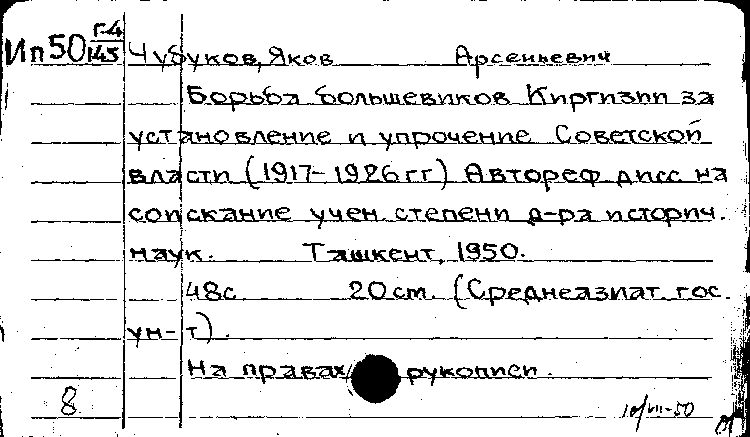 Ип50 Г-4/145 Чубуков, Яков Арсеньевич
Борьба большевиков Киргизии за
установление и упрочение Советской
власти (1917-1926гг) Автореф дисс на
соискание учен степени д-ра историч.
наук. Ташкент, 1950.
48с 20cm. (Среднеазиат гос.
ун-т).
На правах рукописи.
8
10/VII-50